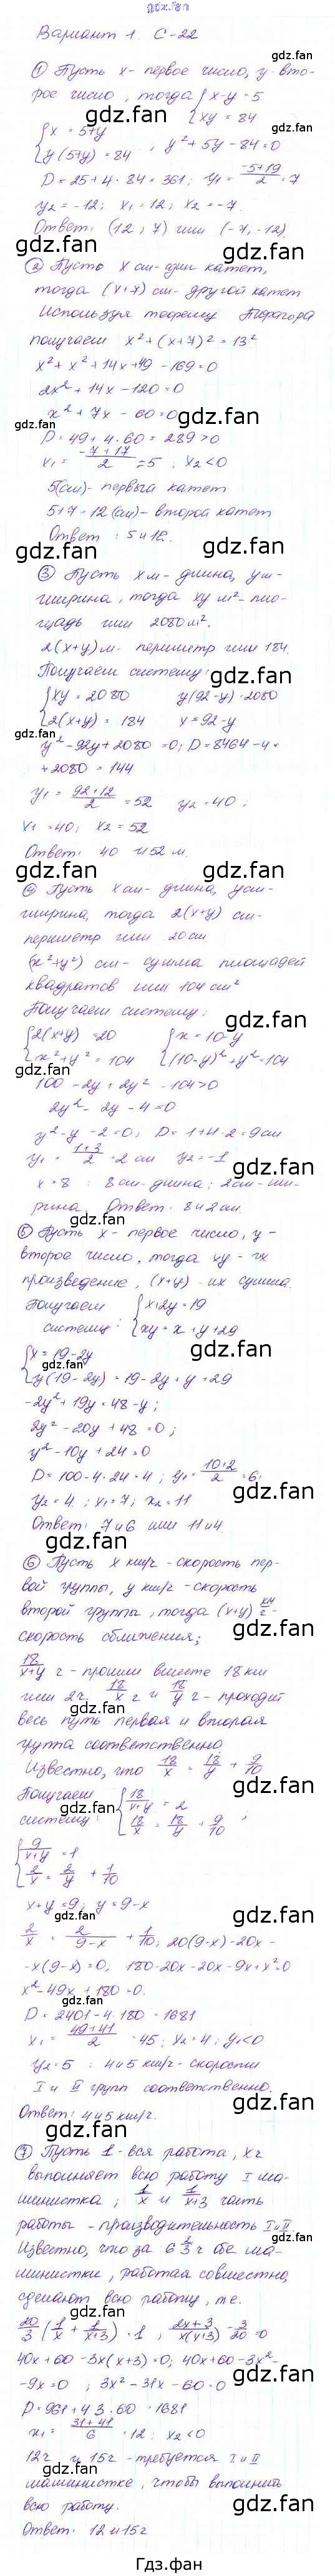 gdz.fan
Вариант 1. С-22
① Пусть x - первое число, y - вто-
рое число, тогда { x-y=5
{ xy = 84
{ x = 5+y
{ y(5+y) = 84 , y²+5y-84=0
D = 25+4·84=361; y₁ = (-5+19)/2 = 7
y₂ = -12; x₁ = 12; x₂ = -7.
Ответ: (12; 7) или (-7; -12)
② Пусть x см - один катет,
тогда (x+7) см - другой катет
Используя теорему Пифагора
получаем x²+(x+7)² = 13²
x²+x²+14x+49-169=0
2x²+14x-120=0
x²+7x-60=0
D = 49+4·60 = 289 > 0
x₁ = (-7+17)/2 = 5; x₂<0
5(см) - первый катет
5+7=12(см) - второй катет
Ответ: 5 и 12.
③ Пусть x м - длина, y м -
ширина, тогда xy м² - пло-
щадь или 2080 м².
2(x+y) м - периметр или 184.
Получаем систему:
{ xy = 2080 y(92-y)=2080
{ 2(x+y) = 184 x=92-y
y²-92y+2080=0; D=8464-4·
·2080=144
y₁ = (92+12)/2 = 52 y₂=40;
x₁=40; x₂=52
Ответ: 40 и 52 м.
④ Пусть x см - длина, y см -
ширина, тогда 2(x+y) см -
периметр или 20 см
(x²+y²) см - сумма площадей
квадратов или 104 см²
Получаем систему:
{ 2(x+y)=20 { x=10-y
{ x²+y²=104 { (10-y)²+y²=104
100-2y+2y²-104>0
2y²-2y-4=0
y²-y-2=0; D=1+4·2=9см
y₁ = (1+3)/2 = 2 см y₂=-1
x=8 : 8 см - длина; 2 см - ши-
рина. Ответ: 8 и 2 см.
⑤ Пусть x - первое число, y -
второе число, тогда xy - их
произведение, (x+y) - их сумма.
Получаем { x+2y=19
систему: { xy=x+y+29
{ x=19-2y
{ y(19-2y)=19-2y+y+29
-2y²+19y=48-y;
2y²-20y+48=0;
y²-10y+24=0
D=100-4·24=4; y₁ = (10+2)/2 = 6;
y₂=4; x₁=7; x₂=11
Ответ: 7 и 6 или 11 и 4.
⑥ Пусть x км/ч - скорость пер-
вой группы, y км/ч - скорость
второй группы, тогда (x+y) км/ч -
скорость сближения;
18/(x+y) ч - прошли вместе 18 км
или 2 ч. 18/x ч и 18/y ч - проходит
весь путь первая и вторая
группа соответственно
Известно, что 18/x = 18/y + 9/10
Получаем { 18/(x+y) = 2
систему: { 18/x = 18/y + 9/10 ,
{ 9/(x+y) = 1
{ 2/x = 2/y + 1/10
x+y=9; y=9-x
2/x = 2/(9-x) + 1/10; 20(9-x)-20x-
-x(9-x)=0; 180-20x-20x-9x+x²=0
x²-49x+180=0.
D=2401-4·180=1681
x₁ = (49+41)/2 = 45; x₂=4; y₁<0
y₂=5 : 4 и 5 км/ч - скорости
I и II групп соответственно.
Ответ: 4 и 5 км/ч.
⑦ Пусть 1 - вся работа, x ч
выполняет всю работу I ма-
шинистка; 1/x и 1/(x+3) часть
работы - производительность I и II
Известно, что за 6 2/3 ч обе ма-
шинистки, работая совместно,
сделают всю работу, т.е.
20/3 (1/x + 1/(x+3)) = 1; (2x+3)/(x(x+3)) - 3/20 = 0
40x+60-3x(x+3)=0; 40x+60-3x²-
-9x=0; 3x²-31x-60=0
D=961+4·3·60=1681
x₁ = (31+41)/6 = 12; x₂<0
12 ч и 15 ч - требуется I и II
машинистке, чтобы выполнить
всю работу.
Ответ: 12 и 15 ч
Гдз.фан